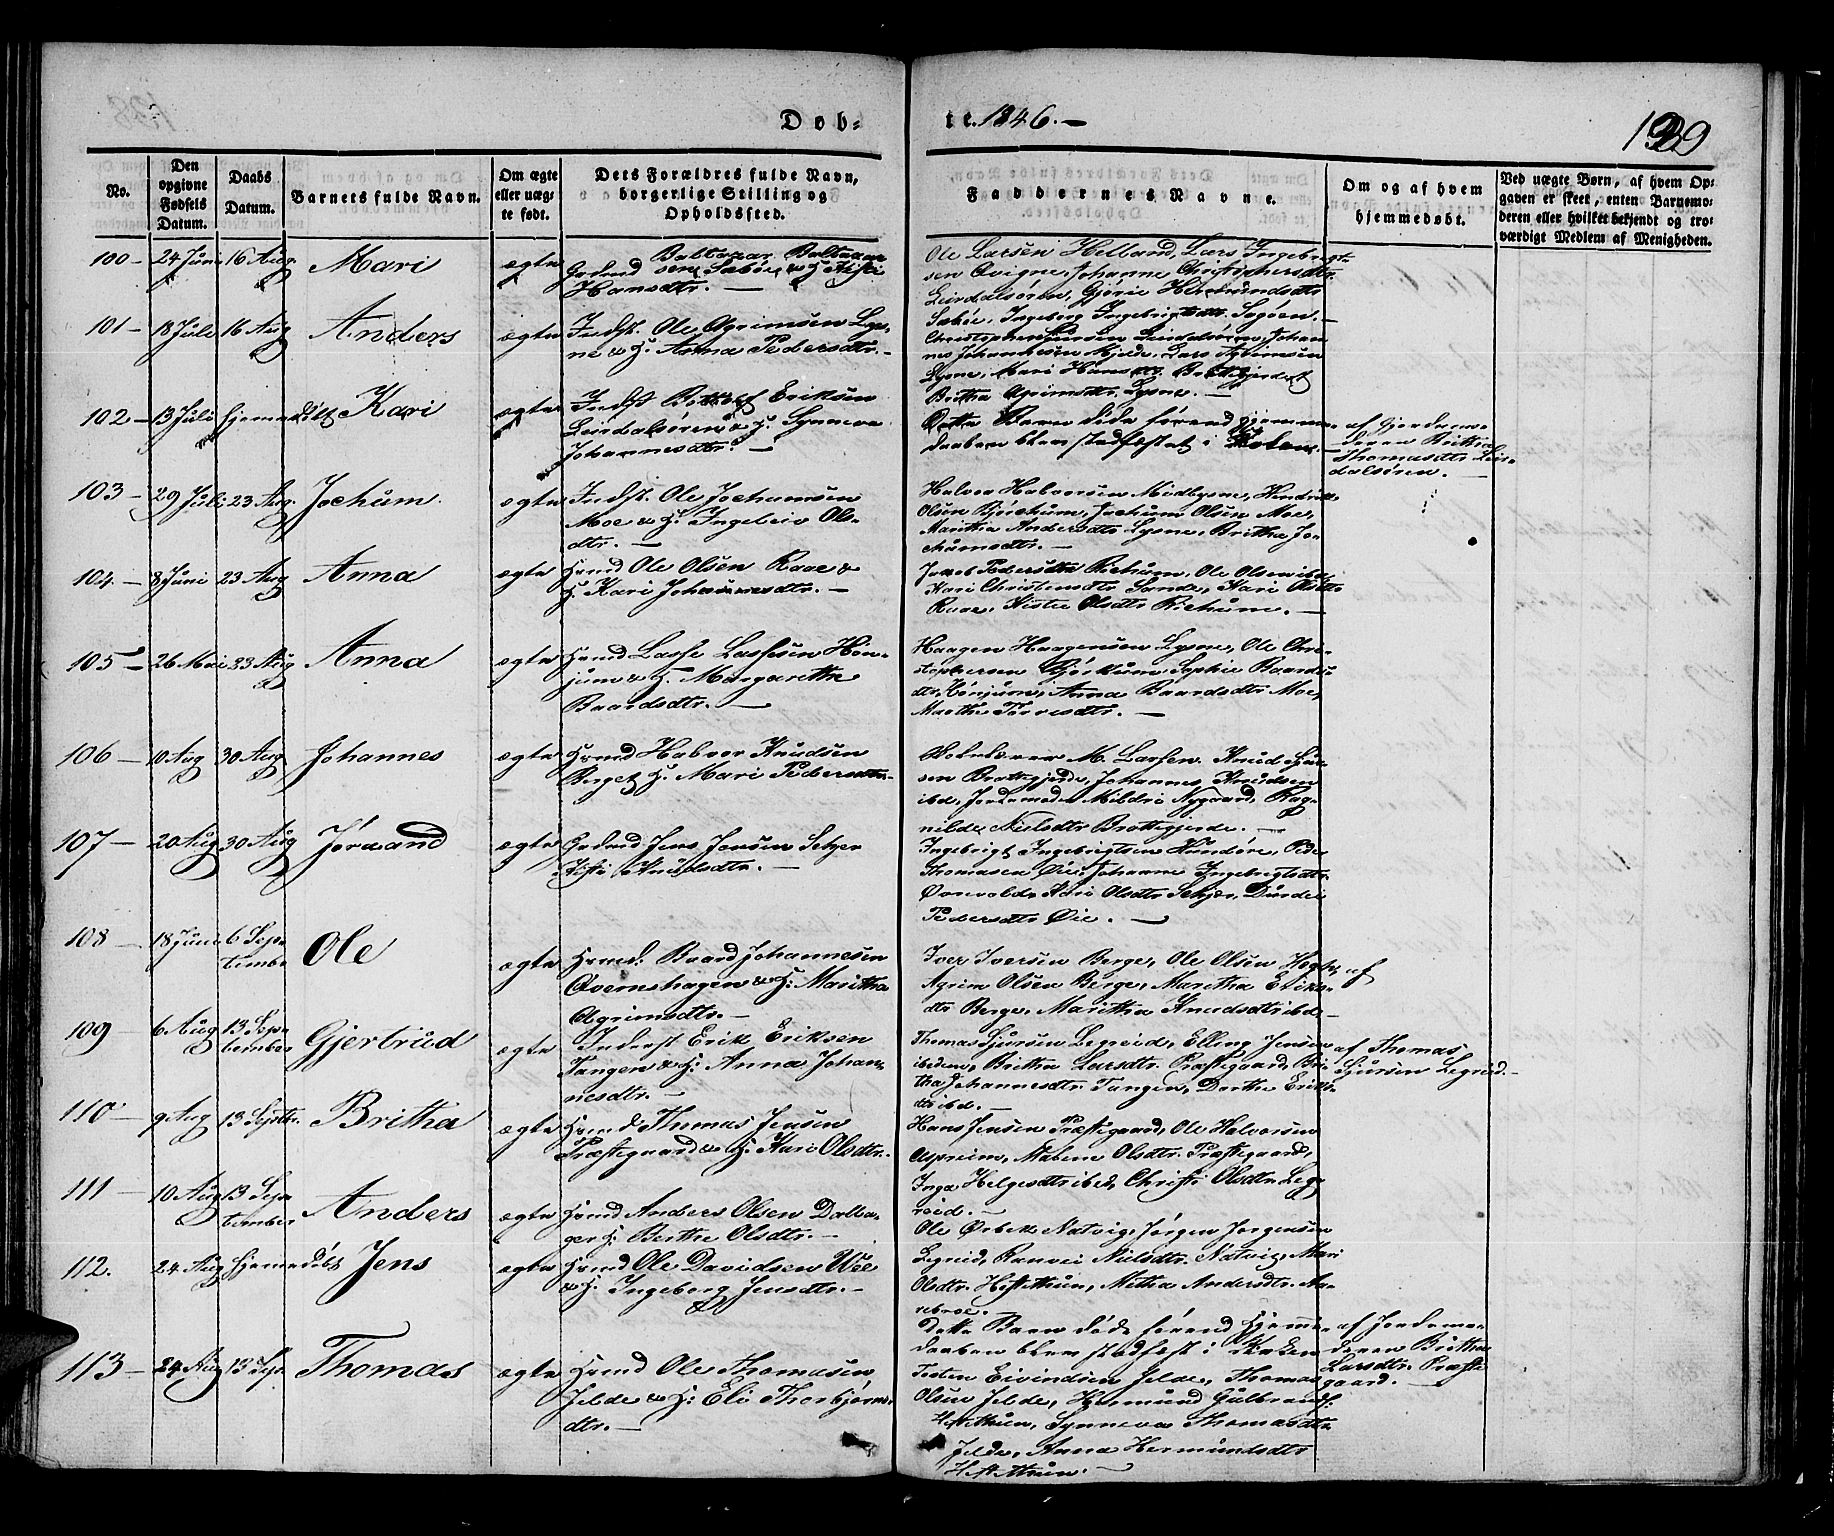 Døb-
te. 1846. —
139
No.
Den opgivne Fødsels Datum.
Daabs Datum.
Barnets fulde Navn.
Om ægte eller uæg-
te født.
Dets Forældres fulde Navn,
borgerlige Stilling og
Opholdssted.
Faddernes Navne.
Om og af hvem
hjemmedøbt.
Ved uægte Børn, af hvem Op-
gaven er skeet, enten Barnemo-
deren eller hvilket bekjendt og tro-
værdigt Medlem af Menigheden.
100 - 24 Juni 16 Aug. Mari ægte
Baltazar Baltazar-
sen Sabøe & H.
Hansdtr. —
Ole Larsen Helland, Lars Ingebrigt-
sen Qvigne, Johanne Christophersdtr.
Leirdalsøren, Gjørie Hermundsdtr
Sabøe, Ingeborg Ingebrigtsdtr.
101 - 18 Juli 16 Aug Anders ægte
Indst. Ole Agrimsen Lys-
ne & H. Anna Pedersdtr. —
Leirdalsøren, Johan-
nes Johannesen Mjelde, Lars Agrimsen
Lysne, Mari Hansdtr. Brottegjerde,
Britha Agrimsdtr. Lysne. —
102 - 13 Juli hjemmedöbt Kari ægte
Indst Erik­sen
Leirdalsøren & H. Synneva
Johannesdtr. —
Dette Barn döde förend Hjemme-
daaben blev stadfæstet i
af Gjordemo-
deren Britha
Thomasdtr Leir-
dalsören. —
103 - 29 Juli 23 Aug. Jochum ægte
Indst. Ole Jochumsen
Moe & H. Ingeleiv Ols-
dtr. —
Halvor Halvorsen Modlysne, Hendrik
Olsen Bjørkum, Jochum Olsen Moe,
Maritha Andersdtr Lysne, Britha Jo-
chumsdtr. —
104. - 8 Juni 23 Aug Anna ægte
Hrmd Ole Olsen Raae &
H. Kari Johannesdtr. —
Jacob Pedersen Ole Olsen ibd,
Kari Christensdtr Sande, Kari Olsdtr
Raae, Olsdtr —
105 - 26 Mai 23 Aug Anna ægte
Hrmd Lasse Lassesen Hön-
jum & H. Margarethe
Baardsdtr. —
Haagen Haagensen Lysne, Ole Chri-
stophersen Bjørkum, Sophie Baards-
dtr. Hönjum, Anna Baardsdtr Moe,
Marthe Torresdtr. —
106 - 10 Aug 30 Aug Johannes ægte
Hrmd Halvor Knudsen
Berget H. Mari Pedersdtr. -
M. Larsen, Knud
sen Brottegjerde, Johannes Knudsen
ibd, Jordemoder Mildri Nygaard, Rag-
nilde Nielsdtr Brottegjerde. —
107 - 20 Aug 30 Aug Jørand ægte
Grdmd Jens Jensen
Knudsdtr. —
Ingebrigt Ingebrigtsen Peder
Thomasen Øie, Johanne Ingebrigtsdtr.
Kari Olsdtr
Pedersdtr Øie. —
108 - 18 Juni 6 Sep-
tember Ole ægte
Hrmd. Baard Johannesen
Øvernshagen & H. Maritha
Agrimsdtr. —
Iver Iversen Berge, Ole Olsen
Agrim Olsen Berge, Maritha Eriks-
dtr Berge, Maritha Knudsdtr ibd. —
af
109 6 Aug 13 Sep-
tember Gjertrud ægte
Inderst Erik Eriksen
Tangen & H. Anna Johan-
nesdtr. —
Thomas Sjursen Legreid, Elling Jensen
ibidem, Britha Larsdtr. Præstegaard, Bri-
tha Johannesdtr. Tangen, Dorthe Eriks-
dtr ibd. —
af Thomas
Sjursen Legreid. —
110 - 9 Aug 13 Septbr. Britha ægte
Hrmd Thomas Jensen
Præstegaard & H. Kari Olsdtr. -
Hans Jensen Præstegaard, Ole Halvorsen
Olsdtr. Præstegaard,
Inga Helgesdtr ibd, Christi Olsdtr. Leg-
reid. —
111 - 10 Aug 13 Sep-
tember Anders ægte
Hrmd Anders Olsen
H. Berthe Olsdtr. —
Ole Natvig, Jørgen Jørgensen
Legreid, Ranvei Nielsdtr. Natvig, Mari
Olsdtr. Hestethun, Metha Andersdtr.
112. 24 Aug hjemmedöbt Jens ægte
Hrmd Ole Davidsen Wee
& H. Ingeborg Jensdtr. —
Dette Barn döde förend Hjemme-
daaben blev stadfæst i
af Jordemo-
deren Britha
Larsdtr. Præste-
gaard. —
113 - 24 Aug 13 Sept. Thomas ægte
Hrmd Ole Thomasen
Jelde & H. Eli Thorbjørns-
dtr. —
Testen Eivindsen Jelde, Thomas
Olsen Jelde, Hermund Gulbrands.
Hestethun, Synneva Thomasdtr
Jelde, Anna Hermundsdtr
Hestethun. —